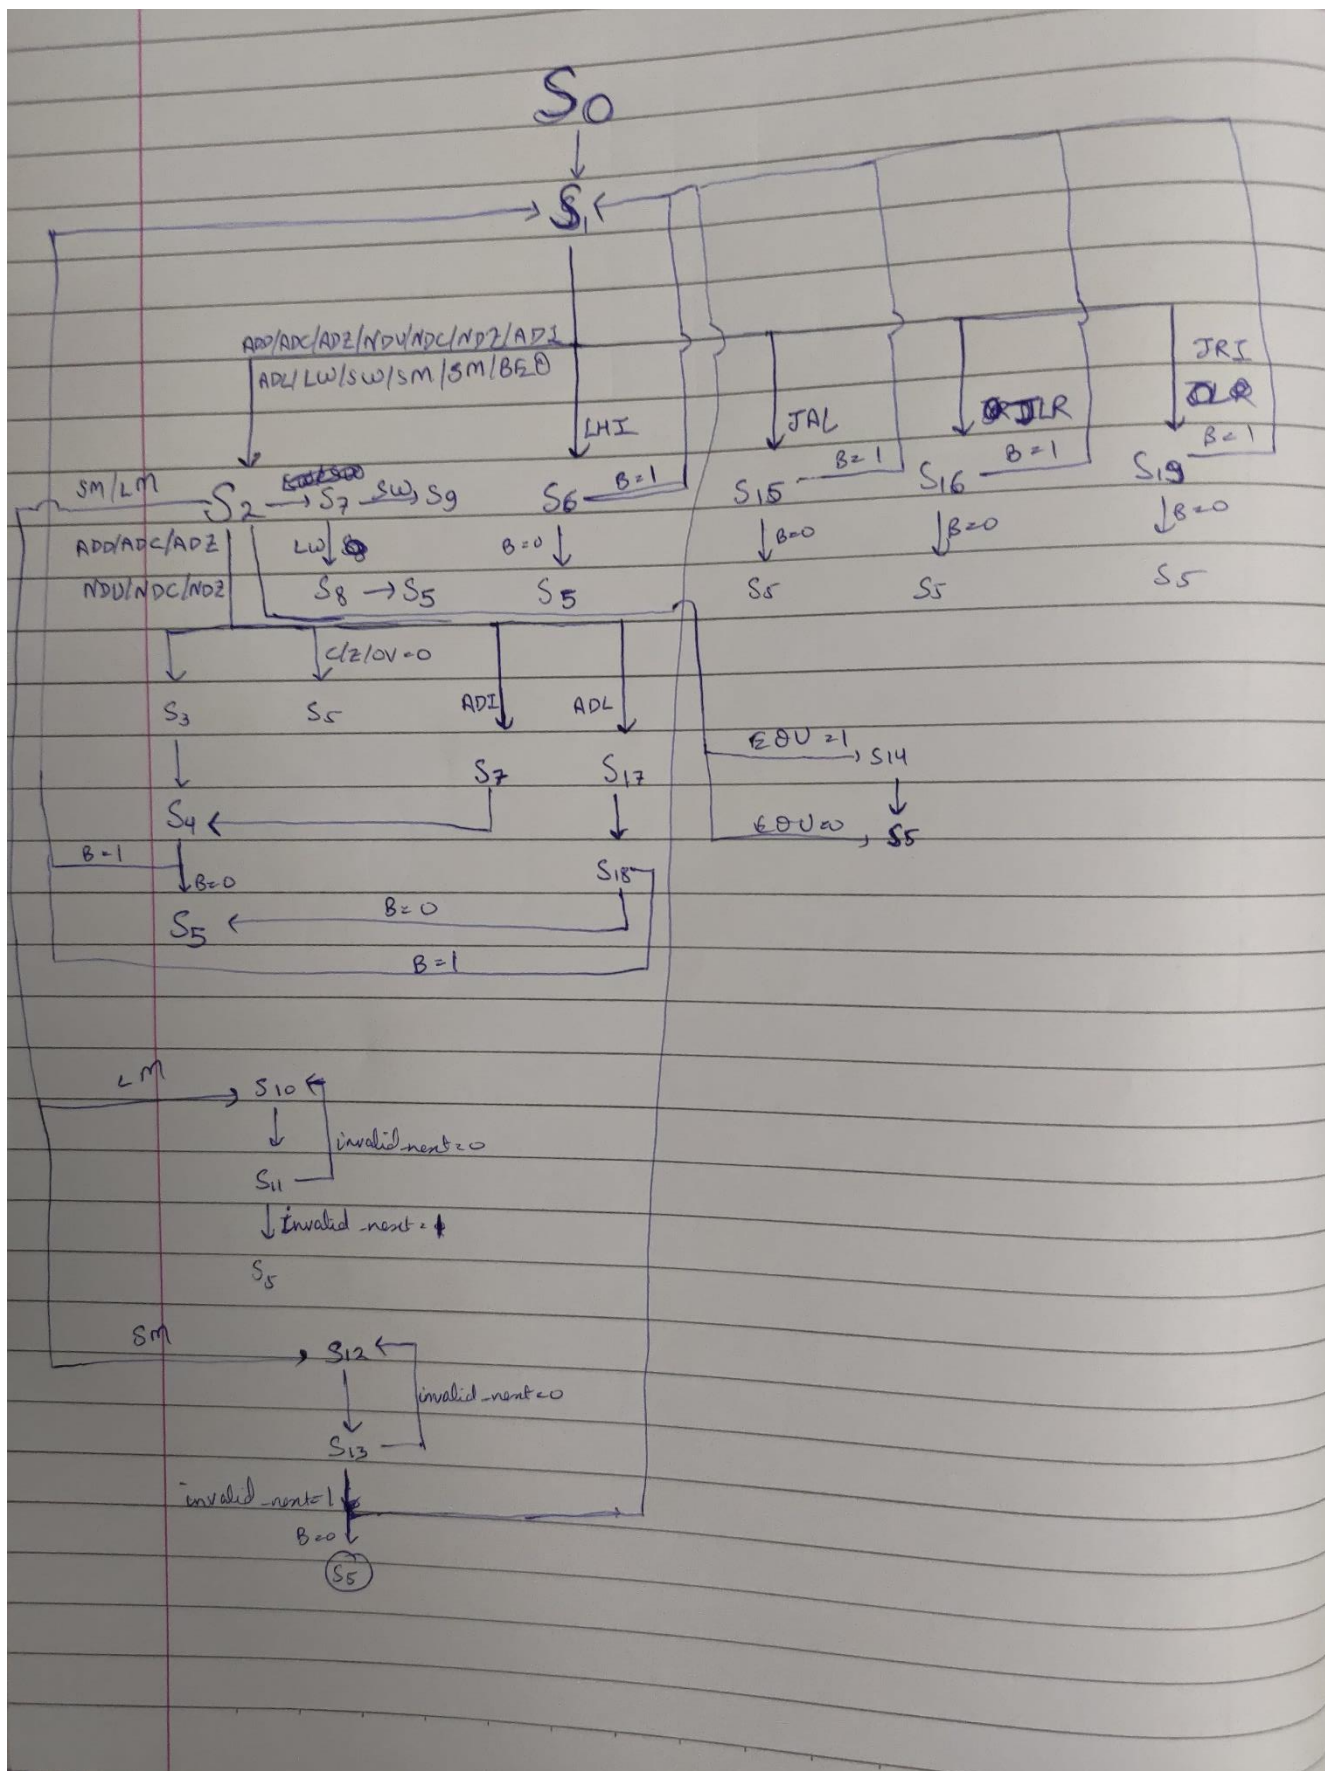 S0
S1
ADD/ADC/ADZ/NDU/NDC/NDZ/ADI
ADL/LW/SW/SM/SM/BEQ
JRI
LHI
JAL
JLR
SM/LM
S2 S7 SW S9
S6 B=1
S15 B=1
S16 B=1
S19 B=1
ADD/ADC/ADZ
LW
B=0
B=0
B=0
B=0
NDU/NDC/NDZ
S8 S5
S5
S5
S5
S5
C/Z/OV=0
S3
S5
ADI
ADL
S7
S17
EQU=1 S14
S4
EQU=0 S5
B=1
B=0
S18
S5
B=0
B=1
LM
S10
invalid_next=0
S11
Invalid_next=1
S5
SM
S12
invalid_next=0
S13
invalid_next=1
B=0
S5